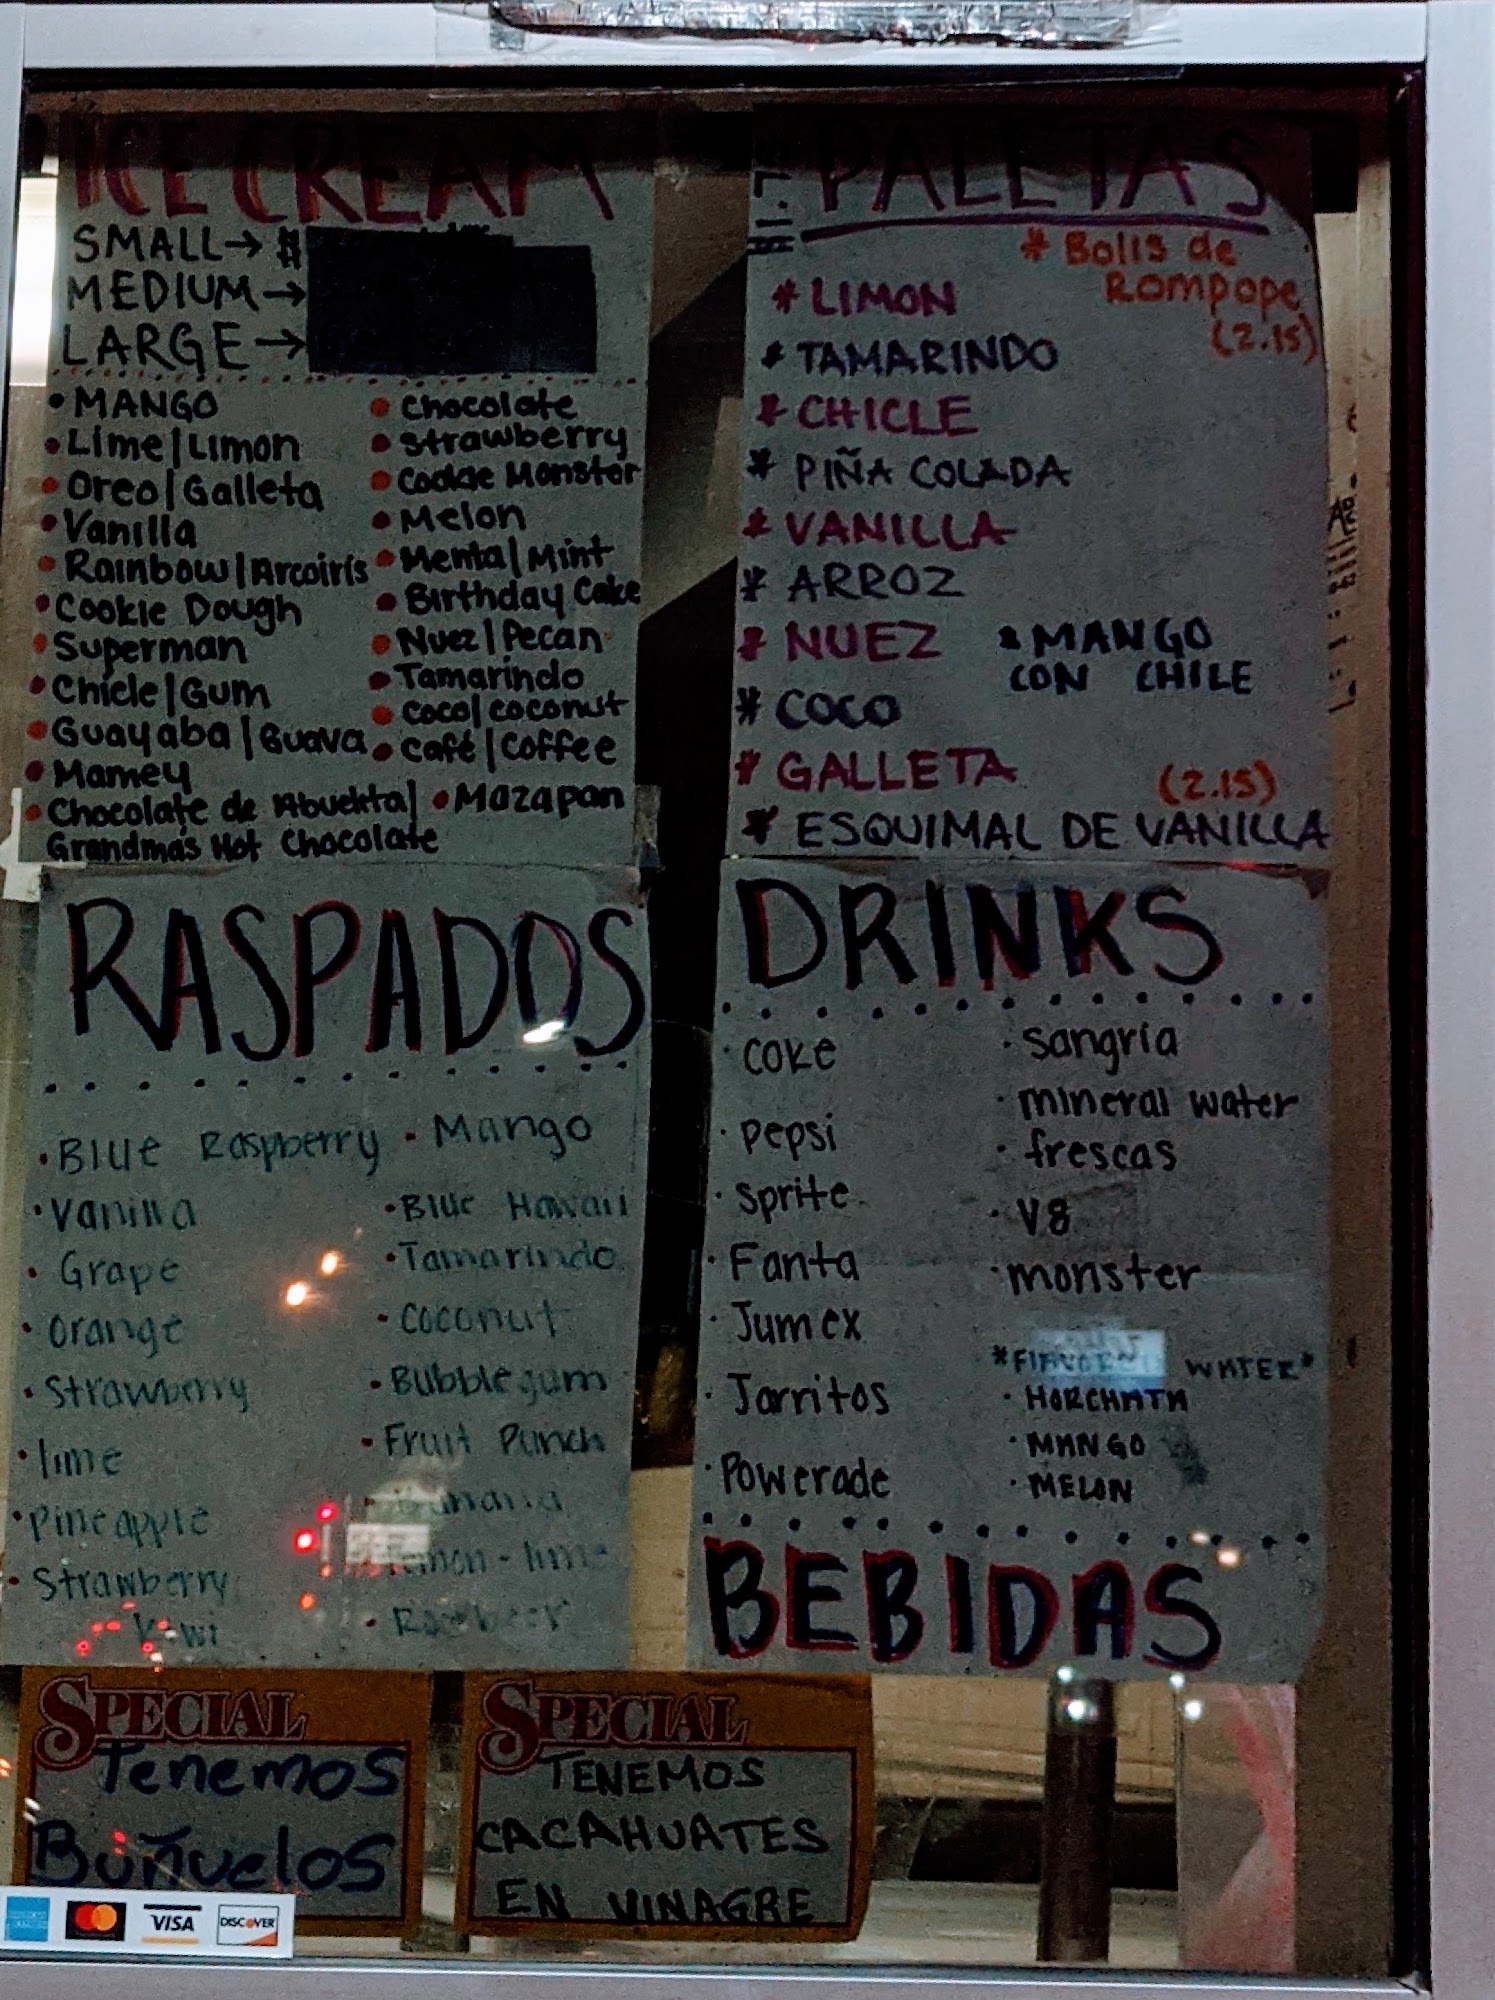 ICE CREAM
SMALL→ $
MEDIUM→
LARGE→
• MANGO
• Lime/Limon
• Oreo/Galleta
• Vanilla
• Rainbow/Arcoiris
• Cookie Dough
• Superman
• Chicle/Gum
• Guayaba/Guava
• Mamey
• Chocolate de Abuelita/
Grandmas Hot Chocolate
• Chocolate
• Strawberry
• Cookie Monster
• Melon
• Menta/Mint
• Birthday Cake
• Nuez/Pecan
• Tamarindo
• Coco/coconut
• Café/Coffee
• Mazapan
PALETAS
* Bolis de
Rompope
(2.15)
* LIMON
* TAMARINDO
* CHICLE
* PIÑA COLADA
* VANILLA
* ARROZ
* NUEZ
* MANGO
CON CHILE
* COCO
* GALLETA
(2.15)
* ESQUIMAL DE VANILLA
RASPADOS
• Blue Raspberry
• Vanilla
• Grape
• Orange
• Strawberry
• lime
• Pineapple
• Strawberry
Kiwi
• Mango
• Blue Hawaii
• Tamarindo
• Coconut
• Bubblegum
• Fruit Punch
• Banana
lime
DRINKS
• Coke
• Pepsi
• Sprite
• Fanta
• Jumex
• Jarritos
• Powerade
• Sangria
• mineral water
• frescas
• V8
• monster
WATER*
• HORCHATA
• MANGO
• MELON
BEBIDAS
SPECIAL
Tenemos
Buñuelos
SPECIAL
TENEMOS
CACAHUATES
EN VINAGRE
VISA
DISCOVER